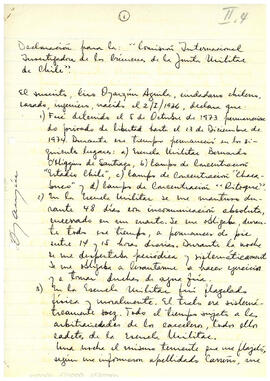 1
II.4
Declaración para la: "Comisión Internacional
Investigadora de los Crímenes de la Junta Militar
de Chile".
El suscrito, Ciro Oyarzún Aguila, ciudadano chileno,
casado, ingeniero, nacido el 2/I/1926, declara que
1) Fué detenido el 5 de Octubre de 1973 permaneciendo
privado de libertad hasta el 13 de Diciembre
de 1974. Durante ese tiempo permaneció en los siguientes
lugares: a) Escuela Militar Bernardo
O'Higgins de Santiago, b) Campo de Concentración
"Estadio Chile", c) Campo de Concentración "Chacabuco"
y d) Campo de Concentración "Ritoque".
2) En la Escuela Militar se me mantuvo durante
48 días en incomunicación absoluta,
encerrado en un cuarto. Se me obligaba, durante
todo ese tiempo, a permanecer de pie
entre 14 y 15 horas diarias. Durante la noche
se me despertaba periódica y sistemáticamente
y se me obligaba a levantarme a hacer ejercicios
y a tomar duchas de agua fría.
3) En la Escuela Militar fuí flagelado
física y moralmente. El trato era sistemáticamente
soez. Todo el tiempo sujeto a las
arbitrariedades de los carceleros, todos ellos
cadetes de la Escuela Militar.
Una noche el mismo teniente que me flageló,
según me informaron apellidado Carreño, me
Oyarzún